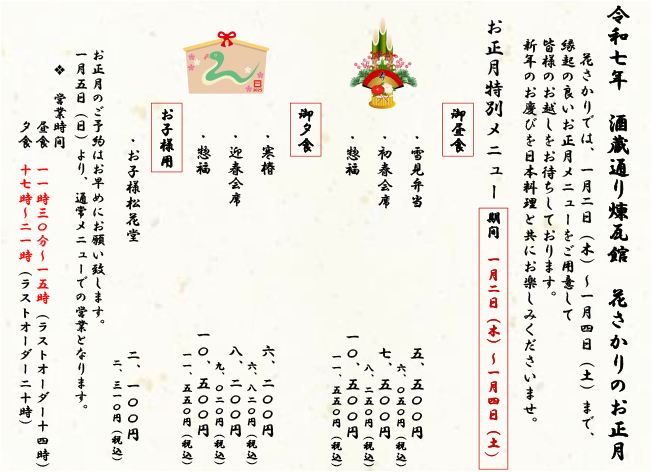 令和七年 酒蔵通り煉瓦館 花さかりのお正月
花さかりでは、一月二日（木）～一月四日（土）まで、
縁起の良いお正月メニューをご用意して
皆様のお越しをお待ちしております。
新年のお慶びを日本料理と共にお楽しみくださいませ。
お正月特別メニュー
期間 一月二日（木）～一月四日（土）
御昼食
・雪見弁当 五、五〇〇円
六、〇五〇円（税込）
・初春会席 七、五〇〇円
八、二五〇円（税込）
・惣福 一〇、五〇〇円
一一、五五〇円（税込）
御夕食
・寒椿 六、二〇〇円
六、八二〇円（税込）
・迎春会席 八、二〇〇円
九、〇二〇円（税込）
・惣福 一〇、五〇〇円
一一、五五〇円（税込）
お子様用
・お子様松花堂 二、一〇〇円
二、三一〇円（税込）
お正月のご予約はお早めにお願い致します。
一月五日（日）より、通常メニューでの営業となります。
❖ 営業時間
昼食 一一時三〇分～一五時（ラストオーダー十四時）
夕食 十七時～二一時（ラストオーダー二十時）